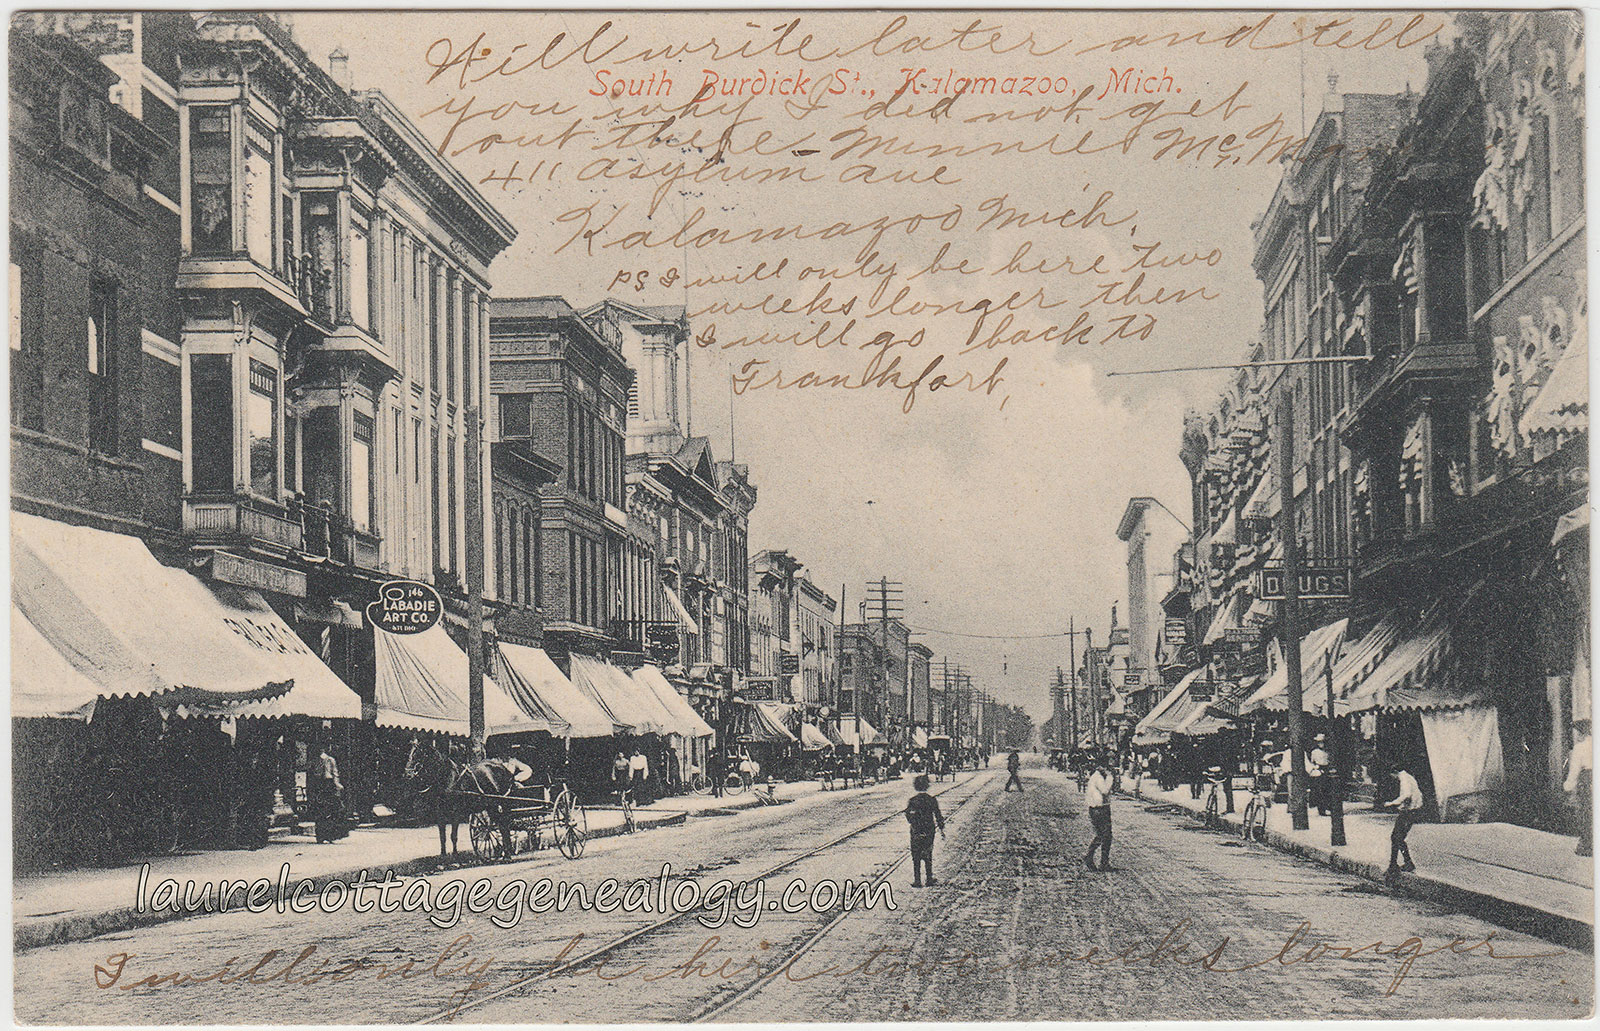 Will write later and tell
South Burdick St., Kalamazoo, Mich.
you why I did not get
out there - Minnie Mc
411 asylum ave
Kalamazoo Mich.
PS I will only be here two
weeks longer then
I will go back to
Frankfort,
146
LABADIE
ART CO.
STUDIO
DRUGS
laurelcottagegenealogy.com
I will only be here two weeks longer